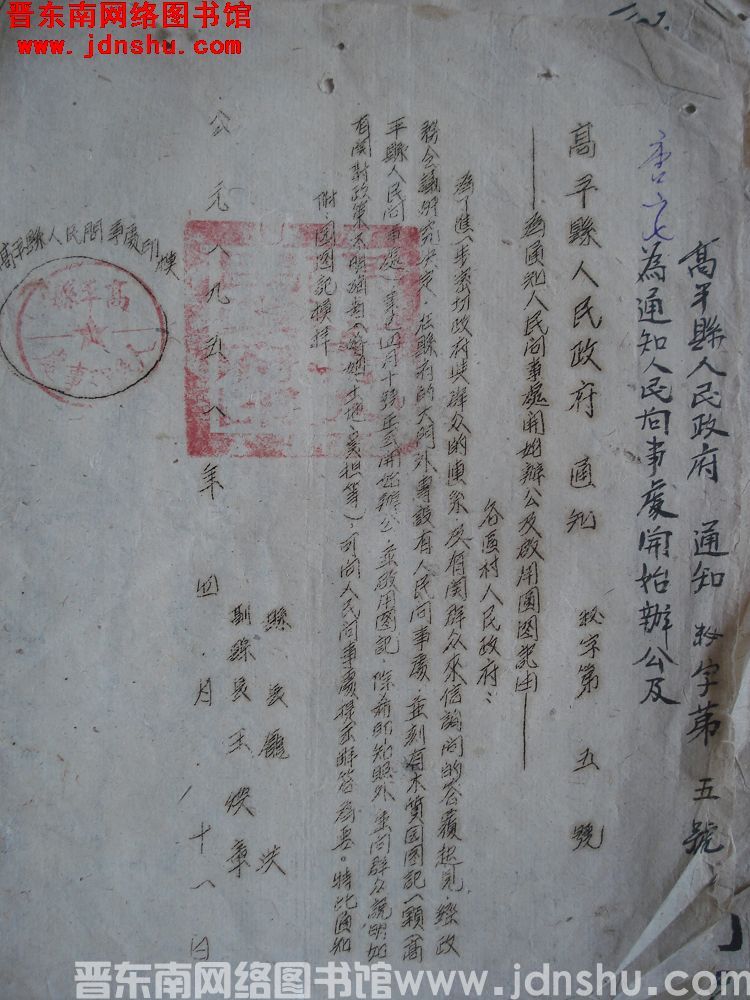 晋东南网络图书馆
www.jdnshu.com
高平縣人民政府 通知 秘字第五號
為通知人民问事處開始辦公及
高平縣人民政府 通知 秘字第 五 號
——為通知人民问事處開始辦公及啟用圆图記由——
各區村人民政府:
為了進一步密切政府與群众的連系,及有関群众來信詢问的答覆起見,經政
務会議研究決定,在縣府的大门外專設有人民问事處,並刻有木質圆图記一顆(高
平縣人民问事處)事已四月十號正式開始辦公,並啟用图記,除前所知照外並向群众說明如
有関對政策不明確者(婚姻、土地、負担等),可向人民问事處 解答為要。特比通知
附:圆图記模样
縣長
副縣長王焕章
公元一九五一年四月十八日
高平縣人民问事處印模
高平縣
人民问事處
晋东南网络图书馆www.jdnshu.com